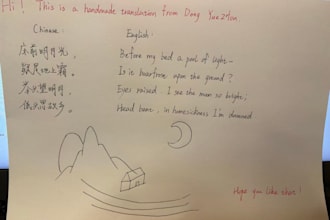 Hi! This is a handmade translation from Dong
Chinese: English:
床前明月光, Before my bed a pool of light-
疑是地上霜。 Is it hoarfrost upon the ground?
举头望明月, Eyes raised, I see the moon so bright,
低头思故乡。 Head bent, in homesickness I'm drowned
Hope you like this!